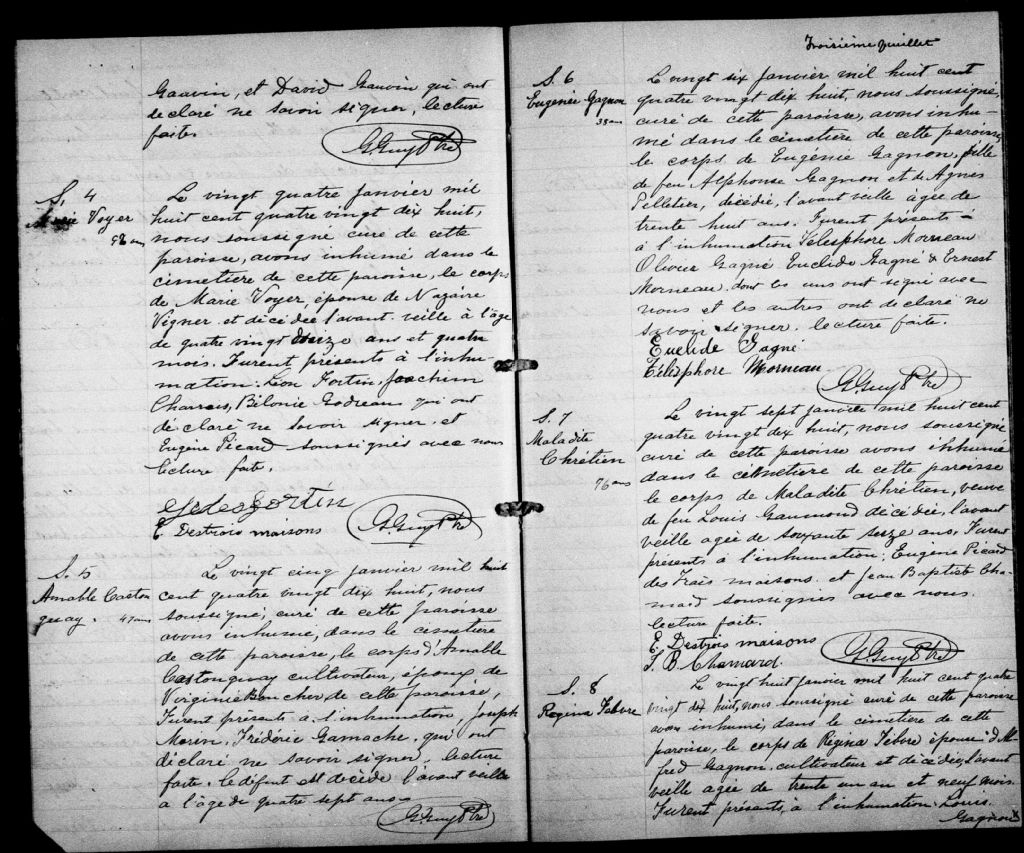 Gauvin, et David Gauvin qui ont
declaré ne savoir signer, lecture
faite.
G. Guy Ptre
S. 4
Marie Voyer
92 ans
Le vingt quatre janvier mil
huit cent quatre vingt dix huit,
nous soussigné curé de cette
paroisse, avons inhumé dans le
cimetiere de cette paroisse, le corps
de Marie Voyer, épouse de Nazaire
Vigner et décédée l'avant-veille à l'âge
de quatre vingt douze ans et quatre
mois. Furent présents à l'inhu-
mation: Léon Fortin, Joachim
Charrois, Bélonie Godreau qui ont
déclaré ne savoir signer, et
Eugène Picard soussignés avec nous
lecture faite.
Fortin
E Destrois maisons
G. Guy Ptre
S. 5
Amable Caston
guay. 47 ans
Le vingt cinq janvier mil huit
cent quatre vingt dix huit, nous
soussigné, curé de cette paroisse
avons inhumé, dans le cimetière
de cette paroisse, le corps d'Amable
Castonguay cultivateur, époux de
Virginie Boucher de cette paroisse,
Furent présents à l'inhumation, Joseph
Morin, Frédéric Gamache, qui ont
déclaré ne savoir signer, lecture
faite. le défunt est décédé l'avant veille
à l'âge de quatre sept ans.
G. Guy Ptre
Troisième feuillet
S. 6
Eugénie Gagnon
38 ans
Le vingt six janvier mil huit cent
quatre vingt dix huit, nous soussigné,
curé de cette paroisse, avons inhu-
mé dans le cimetiere de cette paroisse
le corps de Eugénie Gagnon, fille
de feu Alphonse Gagnon et de Agnes
Pelletier, décédée, l'avant veille âgée de
trente huit ans. Furent présents
à l'inhumation Télesphore Morneau
Olivier Gagné Euclide Gagné & Ernest
Morneau dont les uns ont signé avec
nous et les autres ont declaré ne
savoir signer. lecture faite.
Euclide Gagné
Télésphore Morneau
G. Guy Ptre
S. 7
Maladite
Chrétien
76 ans
Le vingt sept janvier mil huit cent
quatre vingt dix huit, nous soussigné
curé de cette paroisse avons inhumé
dans le cimetiere de cette paroisse
le corps de Maladite Chrétien, veuve
de feu Louis Gaumond décédée, l'avant
veille agée de soixante seize ans, Furent
présents à l'inhumation: Eugène Picard
des Trois maisons et Jean Baptiste Cha-
mard soussignés avec nous.
lecture faite.
E. Destrois maisons
J. B. Chamard.
G. Guy Ptre
S. 8
Regina Febvre
Le vingt huit janvier mil huit cent quatre
vingt dix huit, nous soussigné curé de cette paroisse
avons inhumé, dans le cimetière de cette
paroisse, le corps de Régina Fèbvre épouse d'Al
fred Gagnon cultivateur et décédée, l'avant
veille agée de trente un an et neuf mois.
Furent présents, à l'inhumation Louis
Gagnon